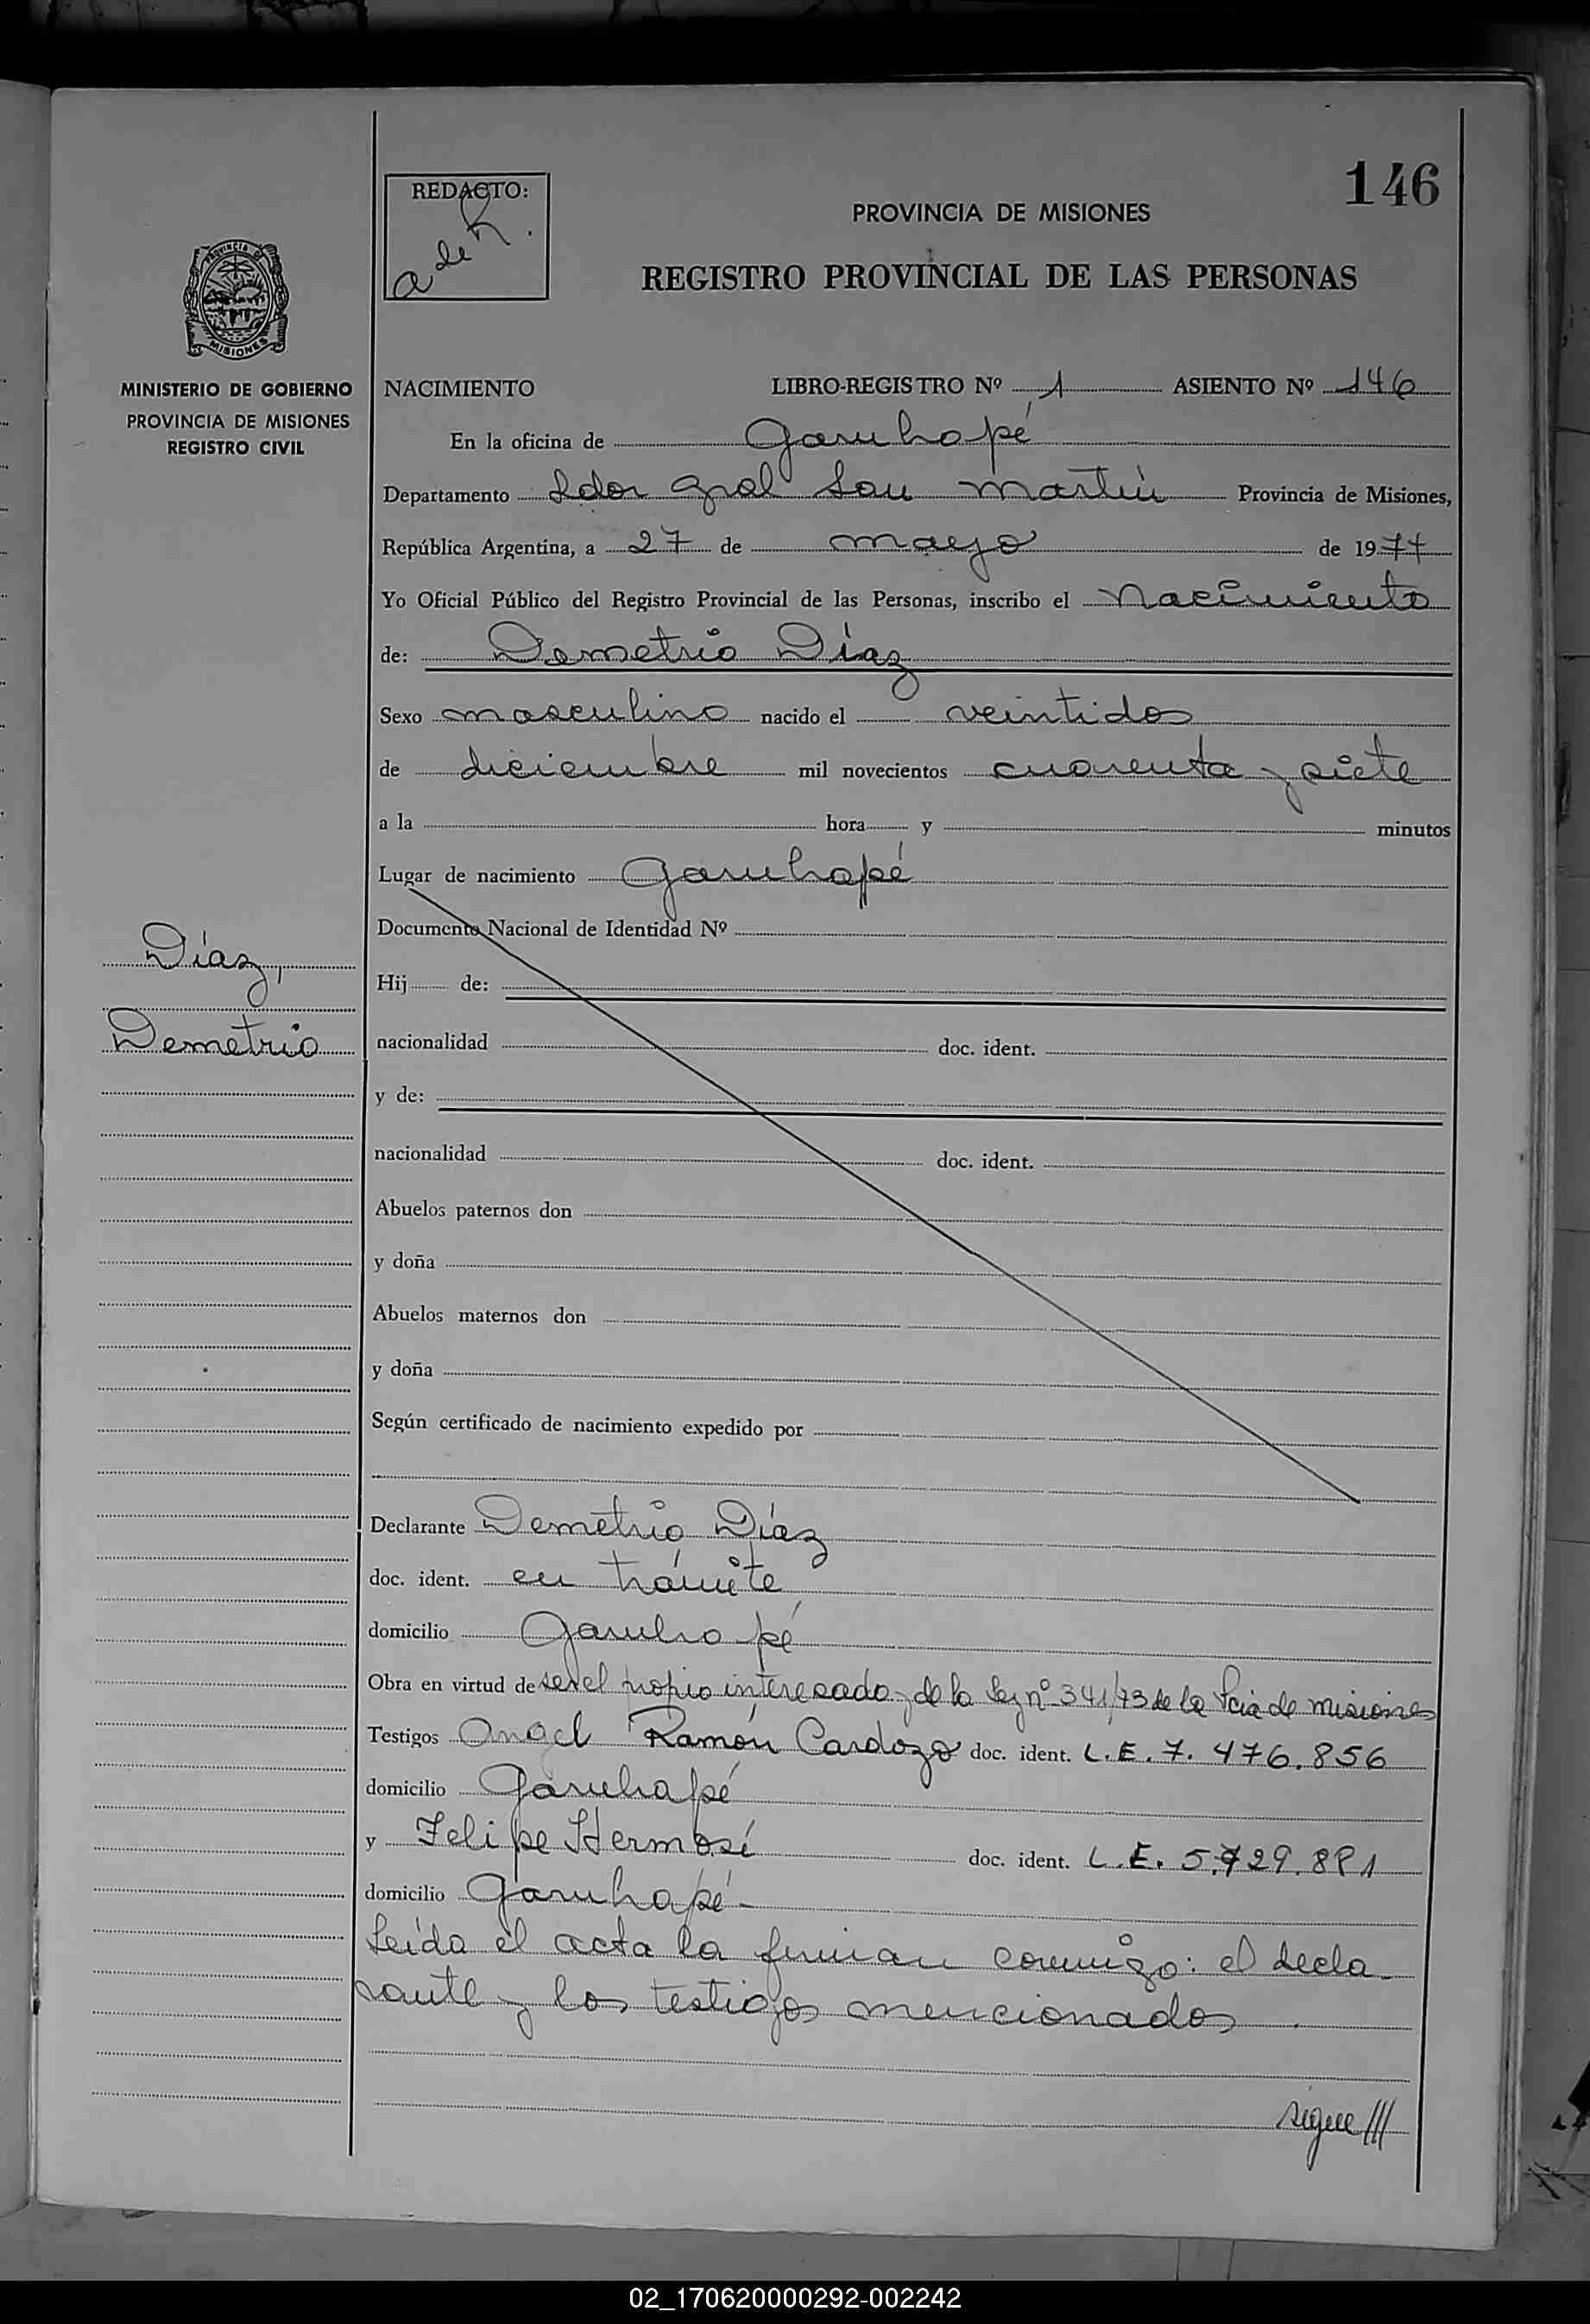 146
REDACTO:
a de R.
PROVINCIA DE MISIONES
REGISTRO PROVINCIAL DE LAS PERSONAS
PROVINCIA DE
MISIONES
MINISTERIO DE GOBIERNO
PROVINCIA DE MISIONES
REGISTRO CIVIL
Díaz,
Demetrio
NACIMIENTO LIBRO-REGISTRO Nº 1 ASIENTO Nº 146
En la oficina de Garuhapé
Departamento Ldor Gral San Martín Provincia de Misiones,
República Argentina, a 27 de mayo de 1977
Yo Oficial Público del Registro Provincial de las Personas, inscribo el Nacimiento
de: Demetrio Díaz
Sexo masculino nacido el veintidos
de diciembre mil novecientos cuarenta y siete
a la hora y minutos
Lugar de nacimiento Garuhapé
Documento Nacional de Identidad Nº
Hij de:
nacionalidad doc. ident.
y de:
nacionalidad doc. ident.
Abuelos paternos don
y doña
Abuelos maternos don
y doña
Según certificado de nacimiento expedido por
Declarante Demetrio Díaz
doc. ident. en trámite
domicilio Garuhapé
Obra en virtud de ser el propio interesado y de la Ley nº 341/73 de la Pcia de Misiones
Testigos Angel Ramón Cardozo doc. ident. L.E. 7.476.856
domicilio Garuhapé
y Felipe Hermosí doc. ident. L.E. 5.729.881
domicilio Garuhapé-
Leída el acta la firman conmigo: el decla-
rante y los testigos mencionados.
sigue ///
02_170620000292-002242